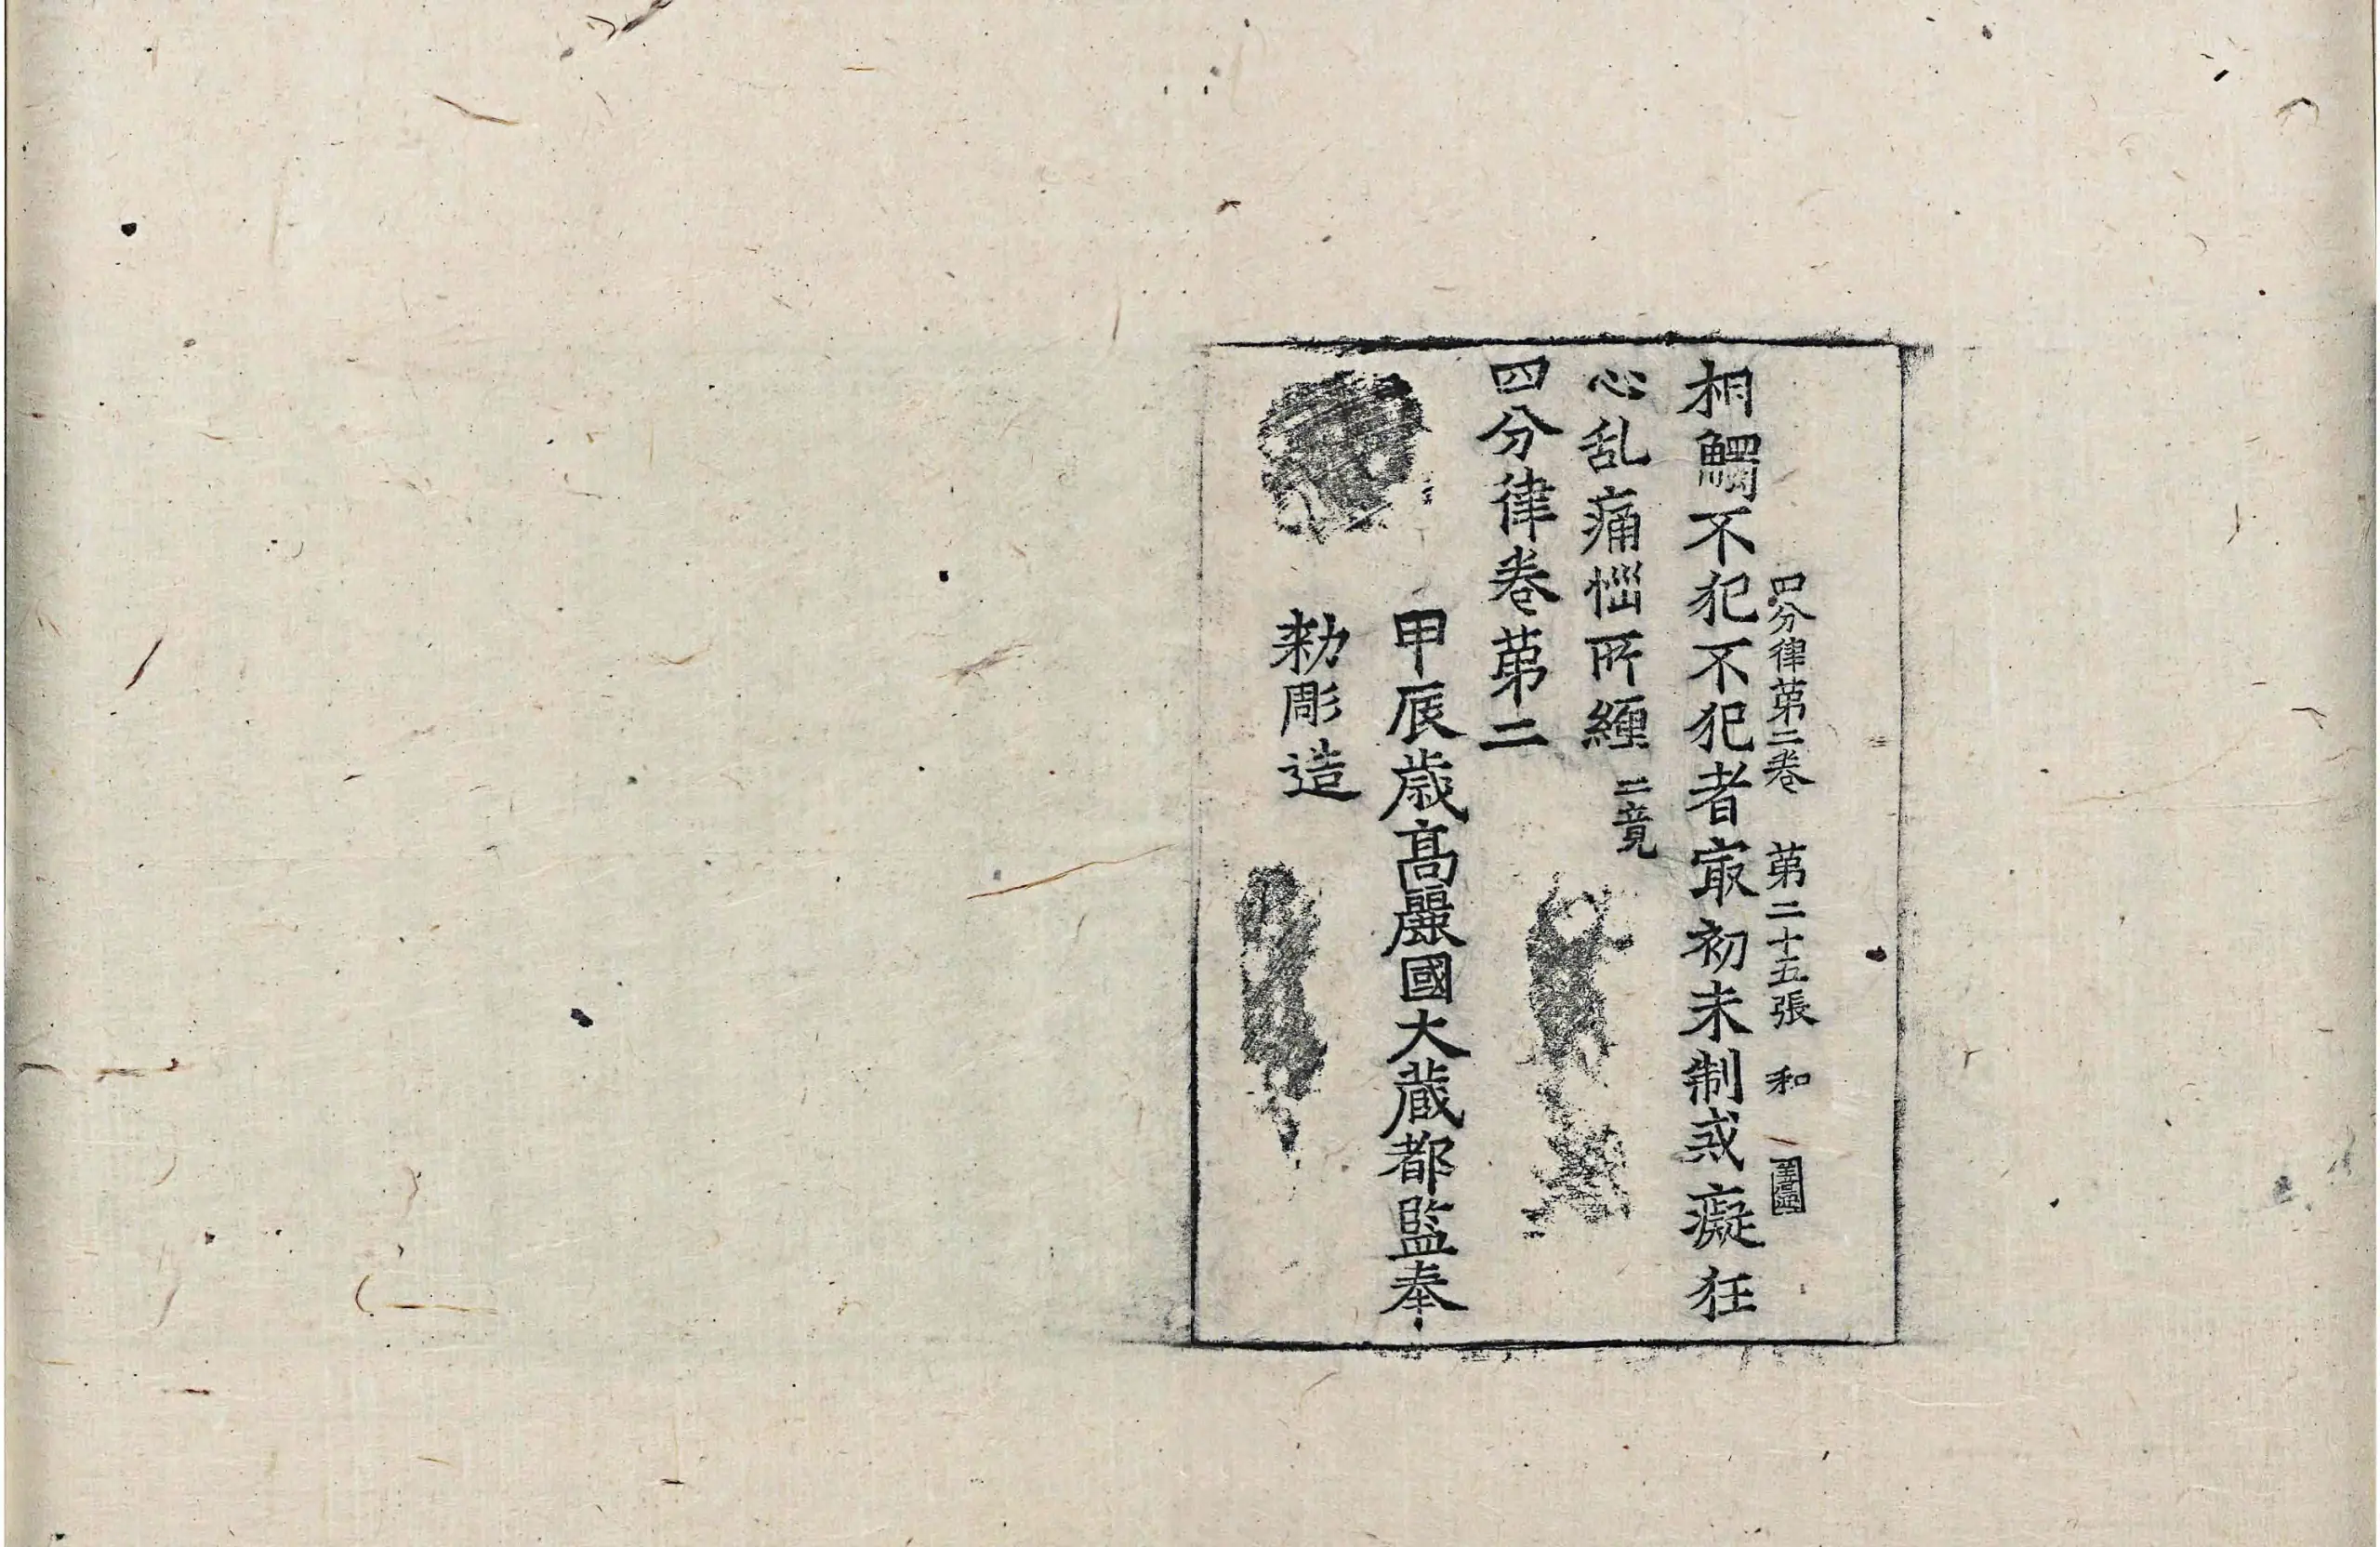 四分律第二卷 第二十五張 和
相觸不犯不犯者㝡初未制或癡狂
心乱痛惱所纏 二竟
四分律卷第二
甲辰歳高麗國大藏都監奉
勑彫造